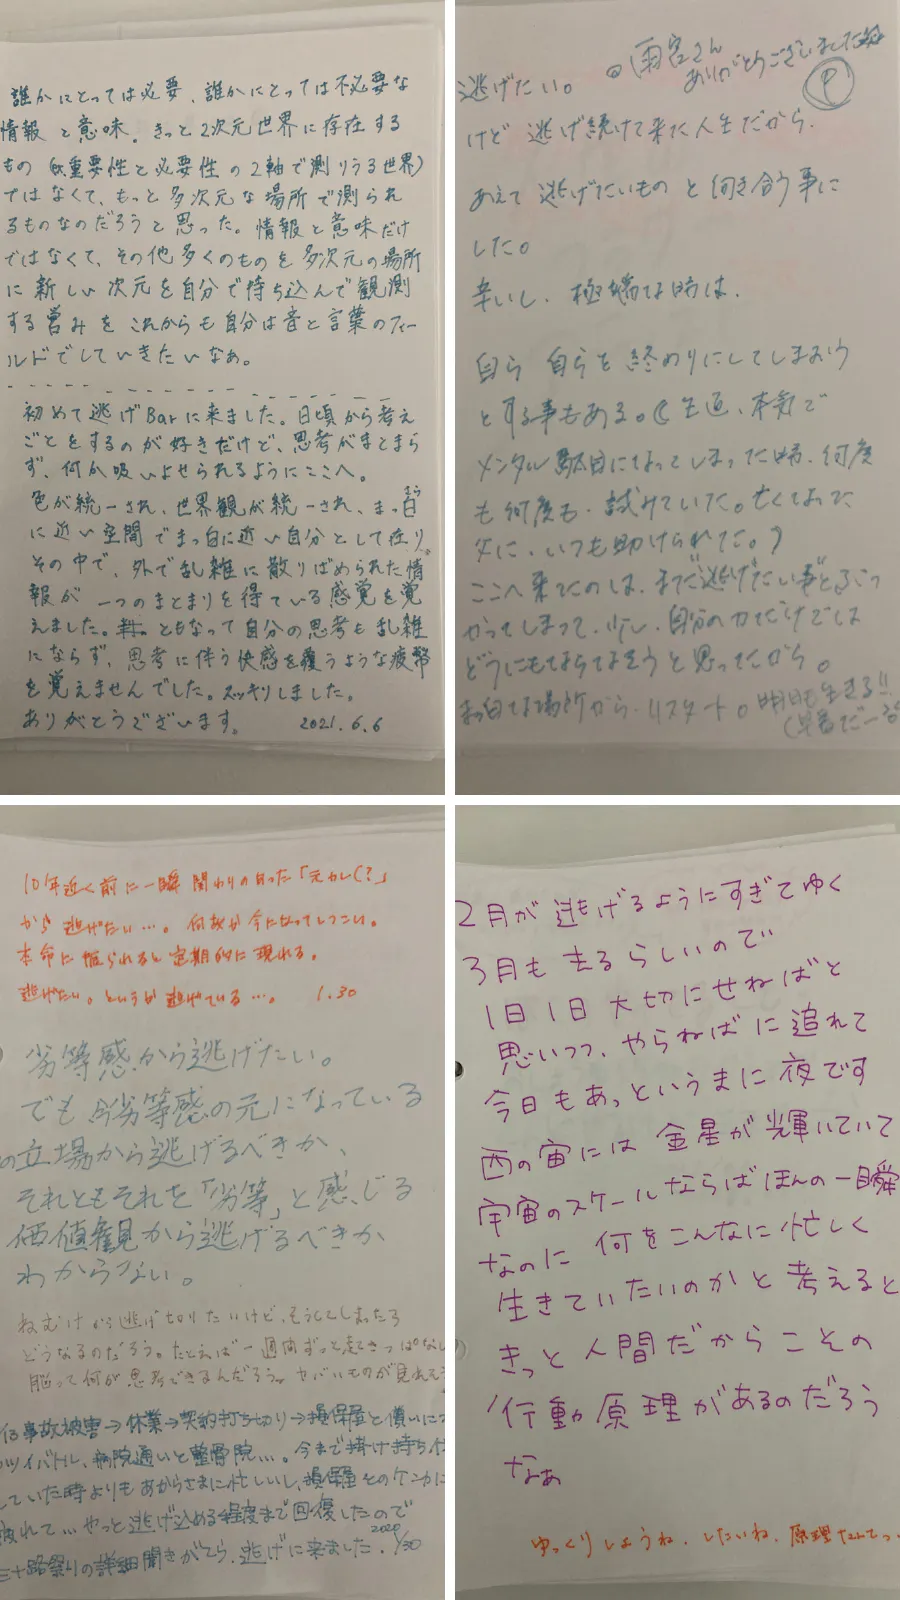 誰かにとっては必要、誰かにとっては不必要な
情報と意味。きっと2次元世界に存在する
もの(重要性と必要性の2軸で測りうる世界)
ではなくて、もっと多次元な場所で測られ
るものなのだろうと思った。情報と意味だけ
ではなくて、その他多くのものを多次元の場所
に新しい次元を自分で持ち込んで観測
する営みをこれからも自分は音と言葉のフィー
ルドでしていきたいなぁ。
初めて逃げBarに来ました。日頃から考え
ごとをするのが好きだけど、思考がまとまら
ず、何か吸いよせられるようにここへ。
色が統一され、世界観が統一され、まっ白
に近い空間でまっ白に近い自分として在り。
その中で、外で乱雑に散りばめられた情
報が一つのまとまりを得ている感覚を覚
えました。ともなって自分の思考も乱雑
にならず、思考に伴う快感を覆うような疲弊
を覚えませんでした。スッキリしました。
ありがとうございます。 2021.6.6
雨宮さん
ありがとうございました
逃げたい。
けど逃げ続けて来た人生だから、
あえて逃げたいものと向き合う事に
した。
辛いし、極端な時は、
自ら自らを終わりにしてしまおう
とする事もある。(生迫、本気で
メンタル駄目になってしまった時、何度
も何度も、試みていた。亡くなった
父に、いつも助けられてた。)
ここへ来たのは、まだ逃げたい事とぶつ
かってしまって、少し、自分の力だけでは
どうにもならなそうと思ったから。
まっ白な場所から、リスタート。明日も生きる!!
10年近く前に一瞬関わりのあった「元カレ(?」
から逃げたい…。何故か今になってしつこい。
本命に振られると定期的に現れる。
逃げたい。というか逃げている…。 1.30
劣等感から逃げたい。
でも今劣等感の元になっている
の立場から逃げるべきか、
それともそれを「劣等」と感じる
価値観から逃げるべきか
わからない。
ねむけから逃げ切りたいけど、そうしてしまったら
どうなるのだろう。たとえば一週間ずっと起きっぱなし
脳って何が思考できるんだろう。ヤバいものが見れそう
事故被害→休業→契約打ち切り→損保屋と償いに
バトル、病院通いと整骨院…。今まで掛け持ち
していた時よりもあからさまに忙しいし、損保屋とのケンカに
疲れて…やっと逃げ込める程度まで回復したので
三十路祭りの詳細聞きがてら、逃げに来ました。 1/30
2月が逃げるようにすぎてゆく
3月も去るらしいので
1日1日大切にせねばと
思いつつ、やらねばに追れて
今日もあっというまに夜です
西の宙には金星が輝いていて
宇宙のスケールならばほんの一瞬
なのに何をこんなに忙しく
生きていたいのかと考えると
きっと人間だからこその
行動原理があるのだろう
なぁ
ゆっくりしようね、したいね、原理なんてっ